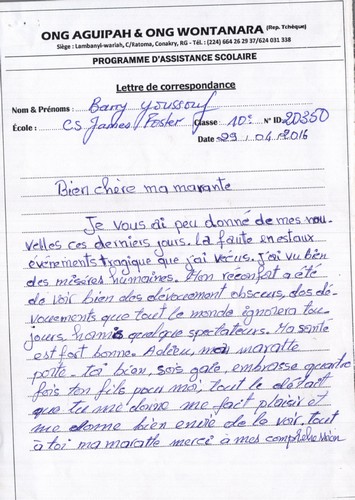 ONG AGUIPAH & ONG WONTANARA (Rep. Tchèque)
Siège : Lambanyi-wariah, C/Ratoma, Conakry, RG - Tél. : (224) 664 26 29 37/624 031 338
PROGRAMME D'ASSISTANCE SCOLAIRE
Lettre de correspondance
Nom & Prénoms : Barry Youssouf
École : CS James Foster Classe 10e N° ID: 20350
Date 29/04/2016
Bien chère ma marante
Je vous ai peu donné de mes nou-
velles ces derniers jours. La faute en estaux
événements tragique que j'ai vécus. j'ai vu bien
des misères humaines. Mon réconfort a été
de voir bien des dévouement obscurs, des dé-
vouements que tout le monde ignorera tou-
jours, homis quelque spectateurs. Ma santé
est fort bonne. Adieu, ma maratte
porte-toi bien, sois gaie, embrasse quatre
fois ton fils pour moi, tout le détail
que tu me donne me fait plaisir et
me donne bien envie de le voir, tout
à toi ma maratte merci à mes